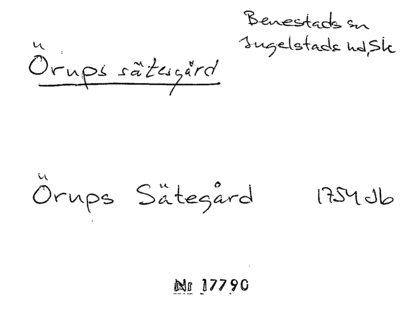 Benestads sn
Ingelstads hd, Sk
Örups sätesgård
Örups Sätegård 1754 Jb
Nr 17790